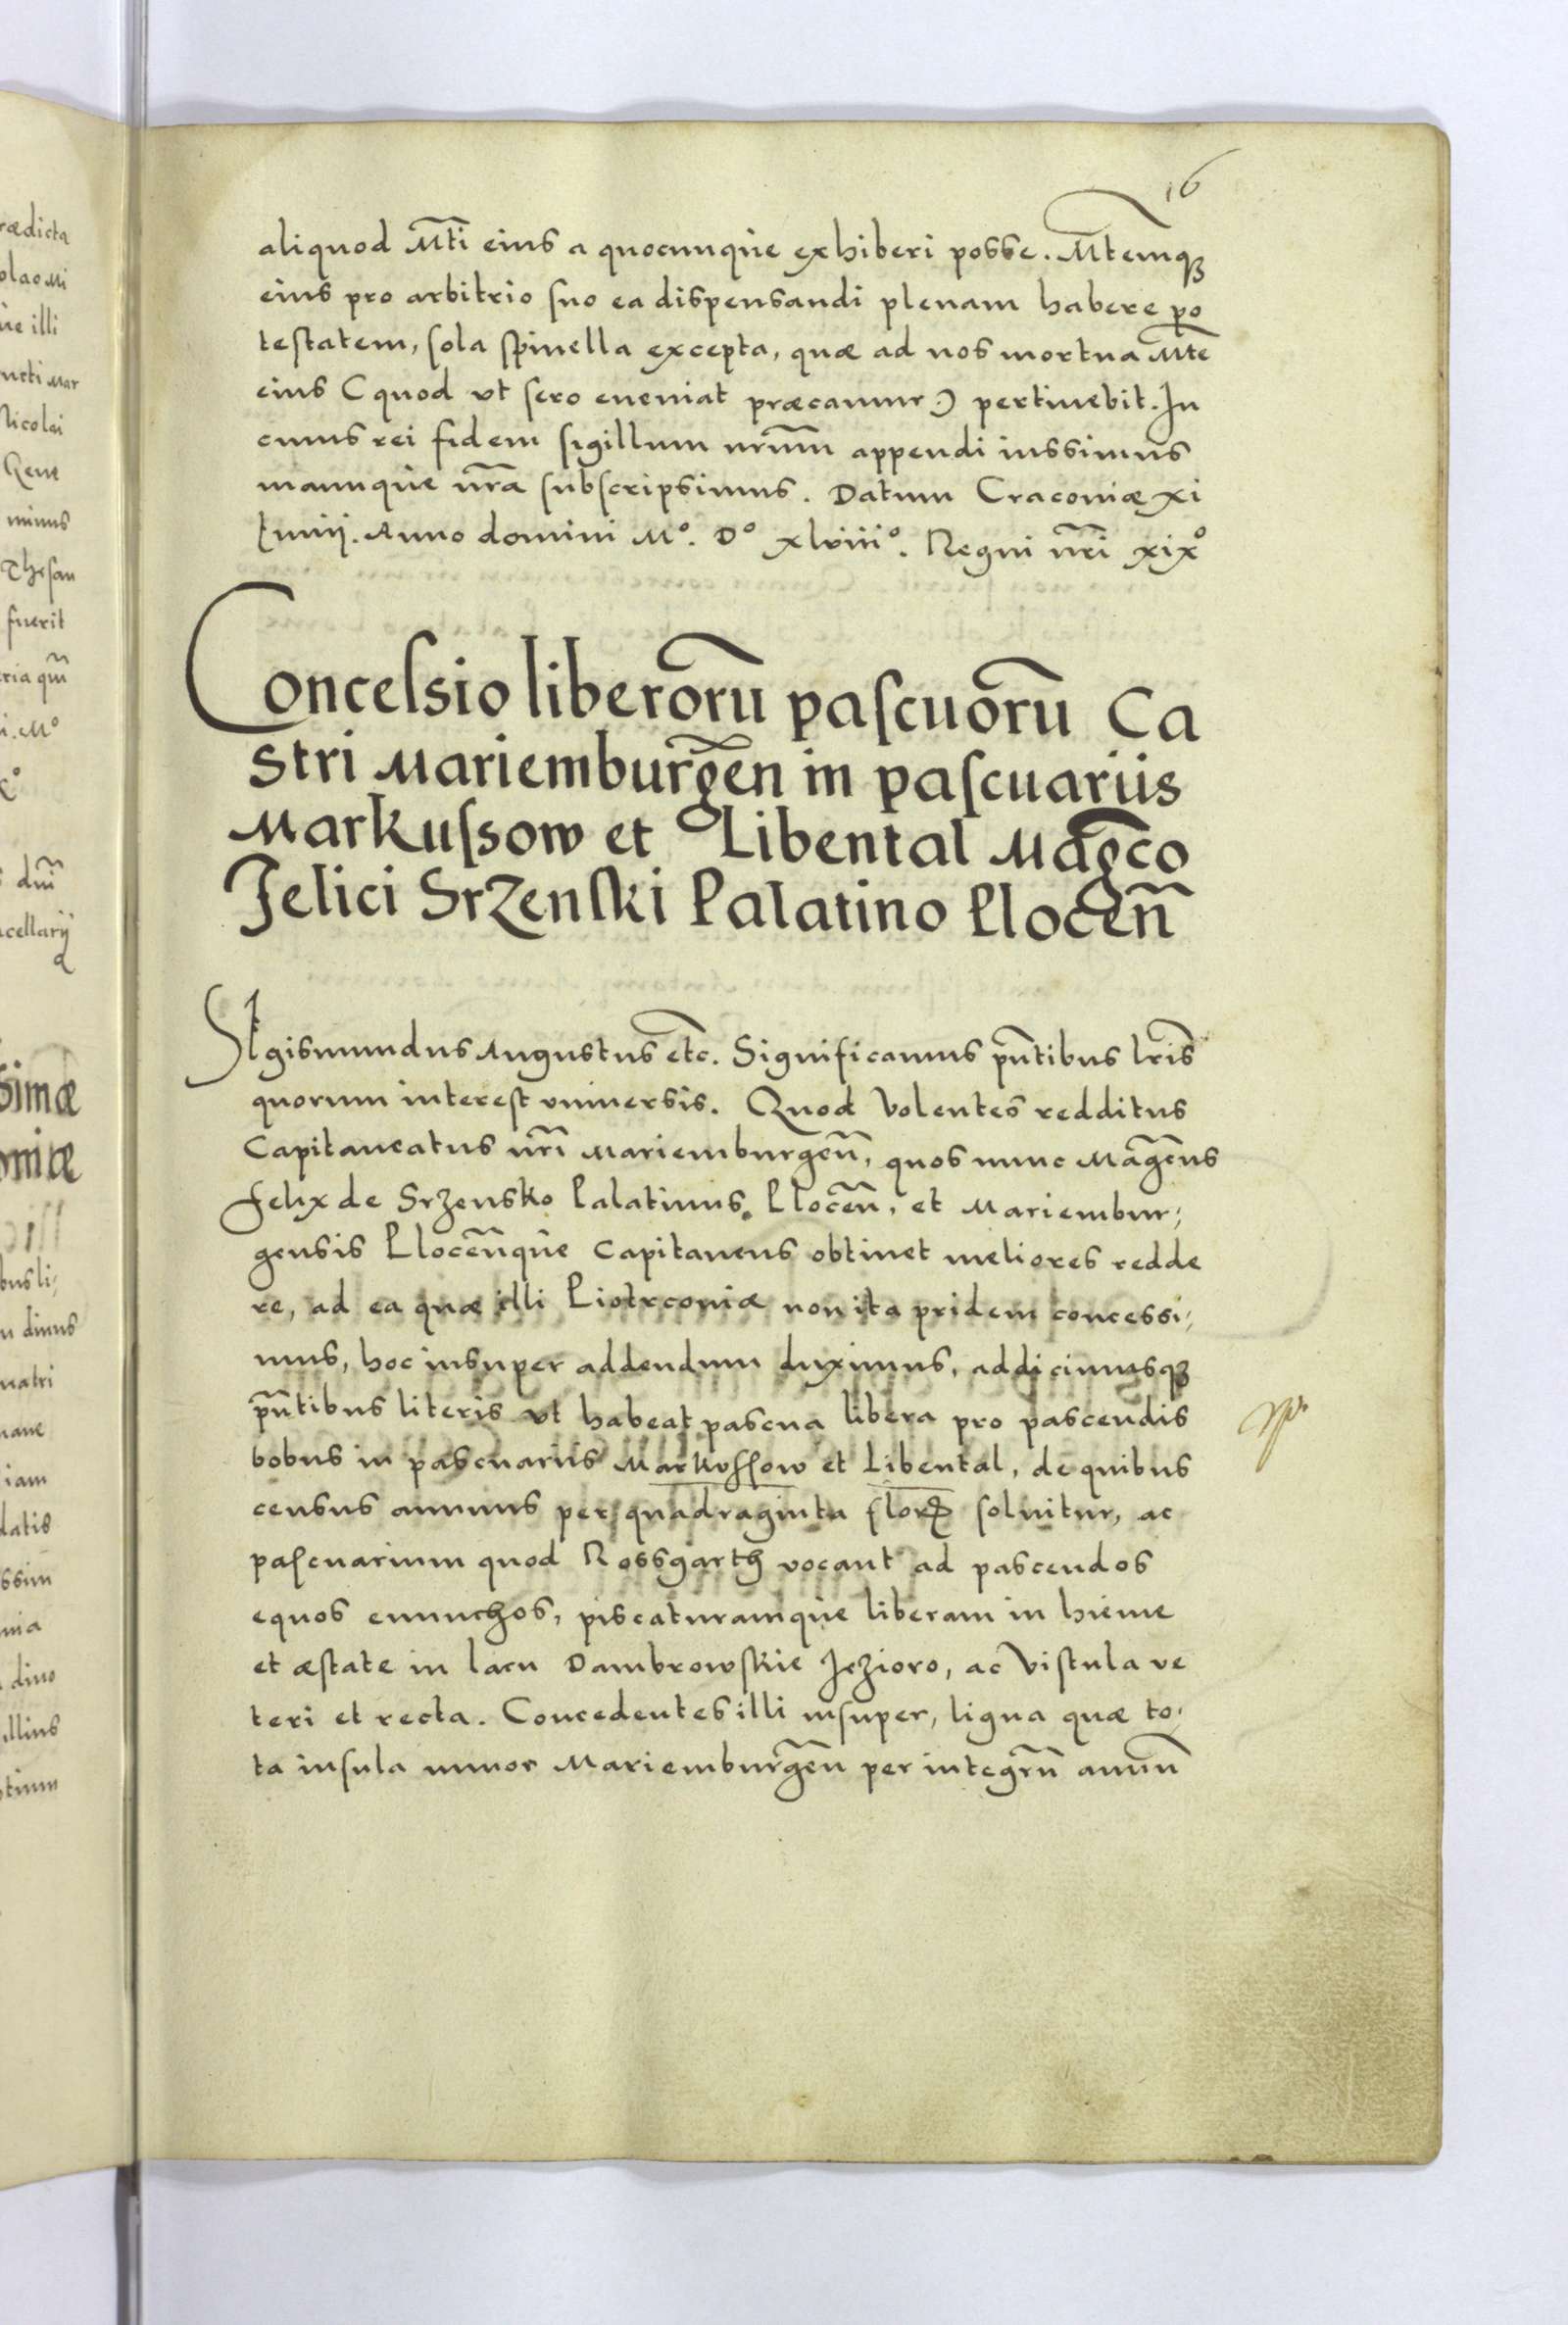 16
aliquod Mt̃i eius a quocunque exhiberi posse. Mt̃emqȝ
eius pro arbitrio suo ea dispensandi plenam habere po
testatem, sola spinella excepta, quæ ad nos mortua Mt̃e
eius (quod vt sero eueniat præcamur:) pertinebit. In
cuius rei fidem sigillum nr̃um appendi iussimus
manuque nr̃a subscripsimus. Datum Cracouiæ xi
Iunij. Anno domini M°. D° xlviii°. Regni nr̃i xix°
Concessio liberorũ pascuorũ Ca
stri Mariemburgeñ in pascuariis
Markussow et Libental Mag̃co
Felici Srzenski Palatino Ploceñ
SIgismundus Augustus etc̃. Significamus pñtibus lr̃is
quorum interest vniuersis. Quod volentes redditus
Capitaneatus nr̃i Mariemburgeñ, quos nunc Mag̃cus
Felix de Srzensko Palatinus Ploceñ, et Mariembur;
gensis Ploceñque Capitaneus obtinet meliores redde
re, ad ea quæ illi Piotrcouiæ non ita pridem concessi;
mus, hoc insuper addendum duximus, addicimusqȝ
pñtibus literis vt habeat pascua libera pro pascendis
bobus in pascuariis Markussow et Libental, de quibus
census annuus per quadraginta florꝭ soluitur, ac
pascuarium quod Rossgarth vocant ad pascendos
equos eunuchos, piscaturamque liberam in hieme
et æstate in lacu Dambrowskie Jezioro, ac Vistula ve
teri et recta. Concedentes illi insuper, ligna quæ to;
ta insula minor Mariemburgeñ per integrũ annũ